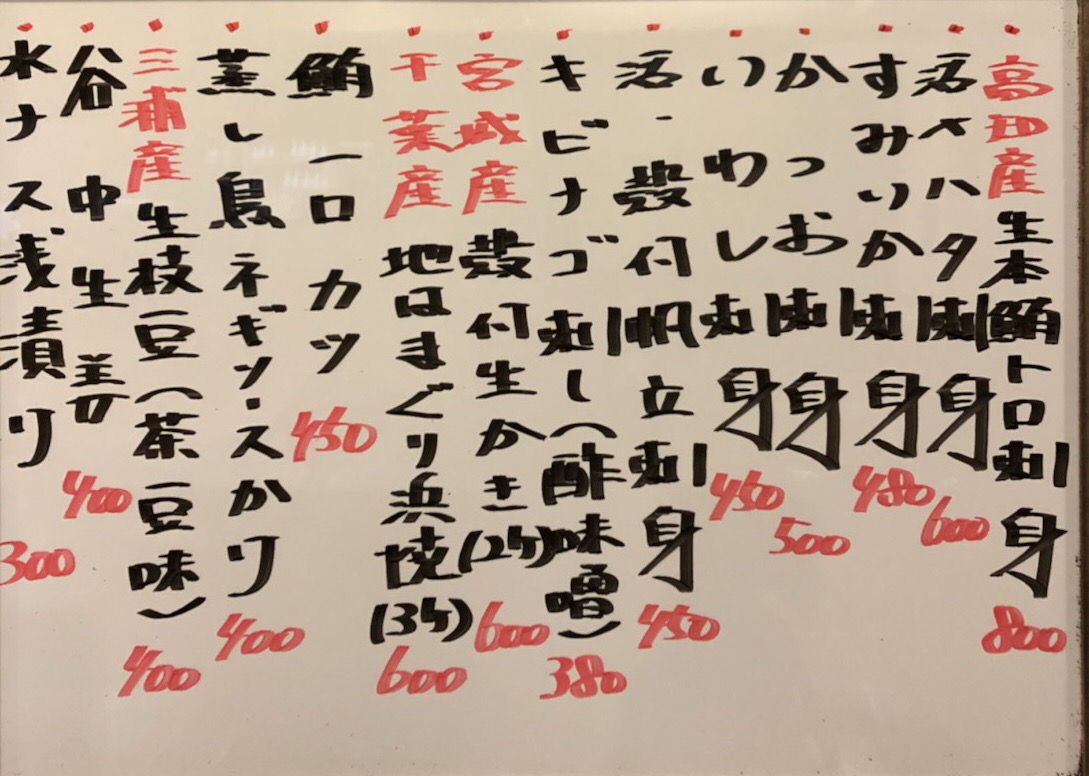 高知産生本鮪トロ刺身 800
活メハタ刺身 600
すみいか刺身 480
かつお刺身 500
いわし刺身 450
活・殻付帆立刺身 450
キビナゴ刺し(酢味噌) 380
宮城産殻付生かき(2ケ) 600
千葉産地はまぐり浜焼(3ケ) 600
鮪一口カツ 450
蒸し鳥ネギソースかり 400
三浦産生枝豆(茶豆味) 400
谷中生姜 400
水ナス浅漬り 300